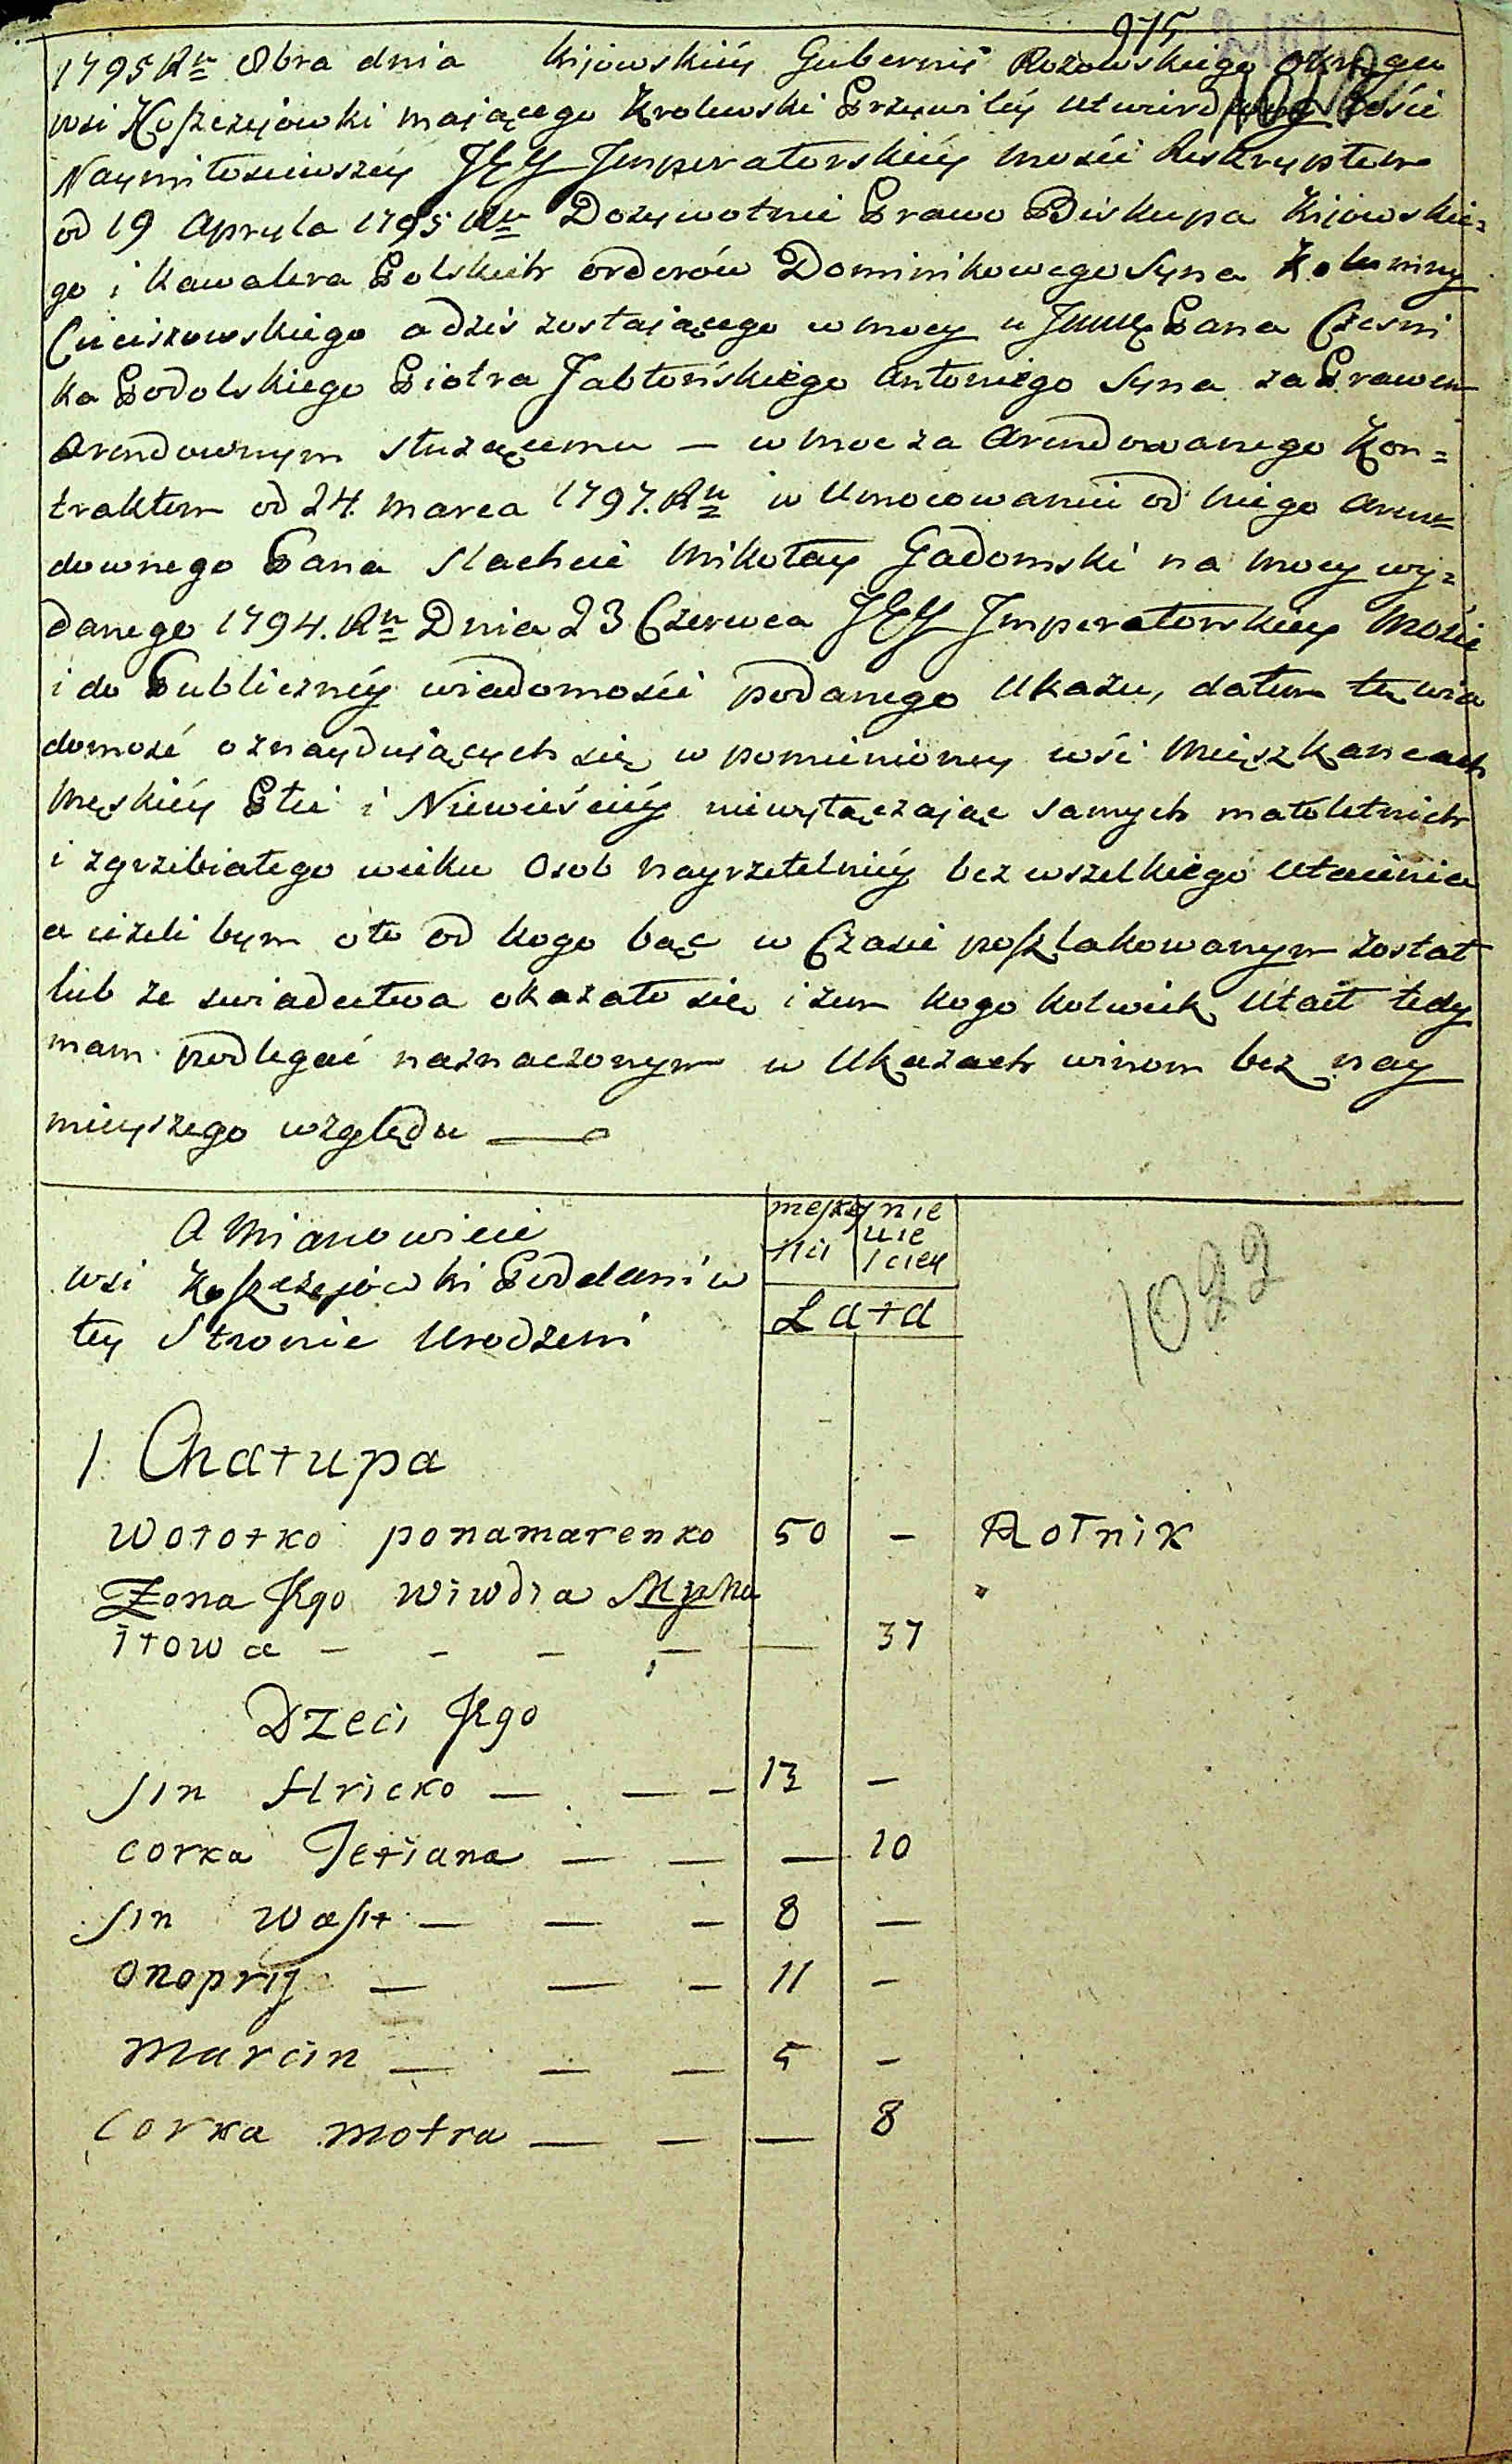 975
1795 Ru 8bra dnia Kijowskiéy Gubernij Rożowskiego Okręgu
wsi Koszczijowki maiącego Krolewski Przywiléy utwierdzony
Naymiłościwszéy JEY Jmperatorskiéy mości Reskryptem
od 19 Apryla 1795 Ru Dożywotnie Prawo Biskupa Kijowskie=
go i Kawalera Polskich orderów Dominikowego Syna Kolumny
Cieciszowskiego a dziś zostaiącego w mocy u Jmmę Pana Czesni
ka Podolskiego Piotra Jabłońskiego Antoniego Syna za Prawem
Arendownym służącemu — w moc za Arendowanego Kon=
traktem od 24. Marca 1797. Ru w Umocowaniu od niego Aren=
downego Pana Slachcic Mikołay Gadomski na mocy wy=
danego 1794. Ru Dnia 23 Czerwca JEY Jmperatorskiey Mości
i do Publicznéy wiadomości podanego Ukazu, datem tę wia
domość o znayduiących się w pomienioney wśi Mięszkancach
Męskiéy Płci i Niewieściéy niewyłączaiąc samych małoletnich
i zgrzebiałego wieku Osob nayrzetelniéy bez wszelkiego Utaienia
a ieżeli bym o to od kogo bąć w Czasie poszlakowanym został
lub ze swiadectwa okazało się iżem kogo kolwiek Utaił tedy
mam podlegać naznaczonym w Ukazach winom bez nay
mieyszego względu —
A Mianowicie
wsi Koszczejówki Poddani w
tey Stronie Urodzeni
męskey
płci
nie
wie
sciey
Lata
1022
1. Chałupa
Wołotko ponamarenko 50 – Rolnik
Żona Jego Wiwdia Mycha
iłowa – – – – — 37
Dzeci Jego
sin Hricko — — – 13 –
corka Tetiana — — — 10
sin Wasil — — – 8 —
onoprij — — – 11 –
Marcin — — — 5 –
corka motra — — — 8